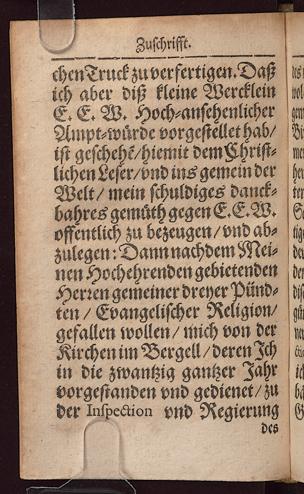 Zuschrifft.
chen Truck zu verfertigen. Daß
ich aber diß kleine Wercklein
E. E. W. Hoch-ansehenlicher
Ampt-würde vorgestellet hab/
ist geschehẽ/hiemit dem Christ-
lichen Leser/vnd ins gemein der
Welt/ mein schuldiges danck-
bahres gemüth gegen E. E. W.
offentlich zu bezeugen/ vnd ab-
zulegen: Dann nachdem Mei-
nen Hochehrenden gebietenden
Herꝛen gemeiner dreyer Pünd-
ten/ Evangelischer Religion/
gefallen wollen/ mich von der
Kirchen im Bergell/deren Ich
in die zwantzig gantzer Jahr
vorgestanden vnd gedienet/ zu
der Inspection vnd Regierung
des